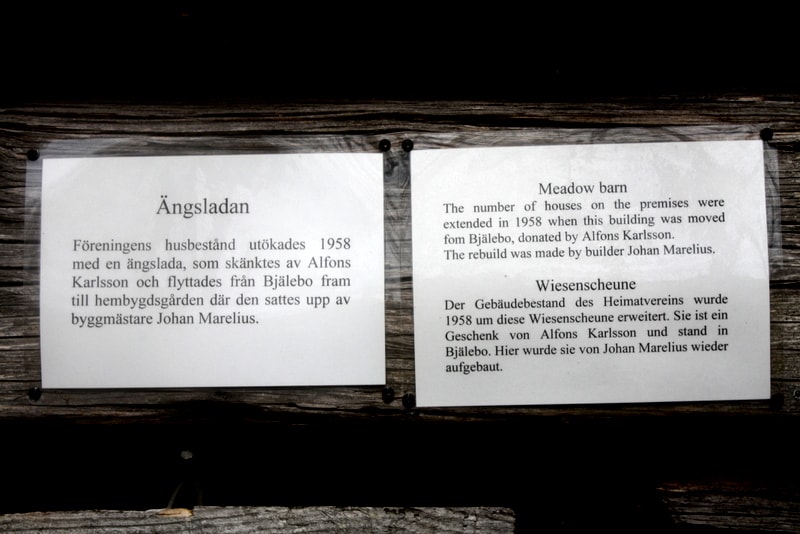 Ängsladan
Föreningens husbestånd utökades 1958
med en ängslada, som skänktes av Alfons
Karlsson och flyttades från Bjälebo fram
till hembygdsgården där den sattes upp av
byggmästare Johan Marelius.
Meadow barn
The number of houses on the premises were
extended in 1958 when this building was moved
fom Bjälebo, donated by Alfons Karlsson.
The rebuild was made by builder Johan Marelius.
Wiesenscheune
Der Gebäudebestand des Heimatvereins wurde
1958 um diese Wiesenscheune erweitert. Sie ist ein
Geschenk von Alfons Karlsson und stand in
Bjälebo. Hier wurde sie von Johan Marelius wieder
aufgebaut.